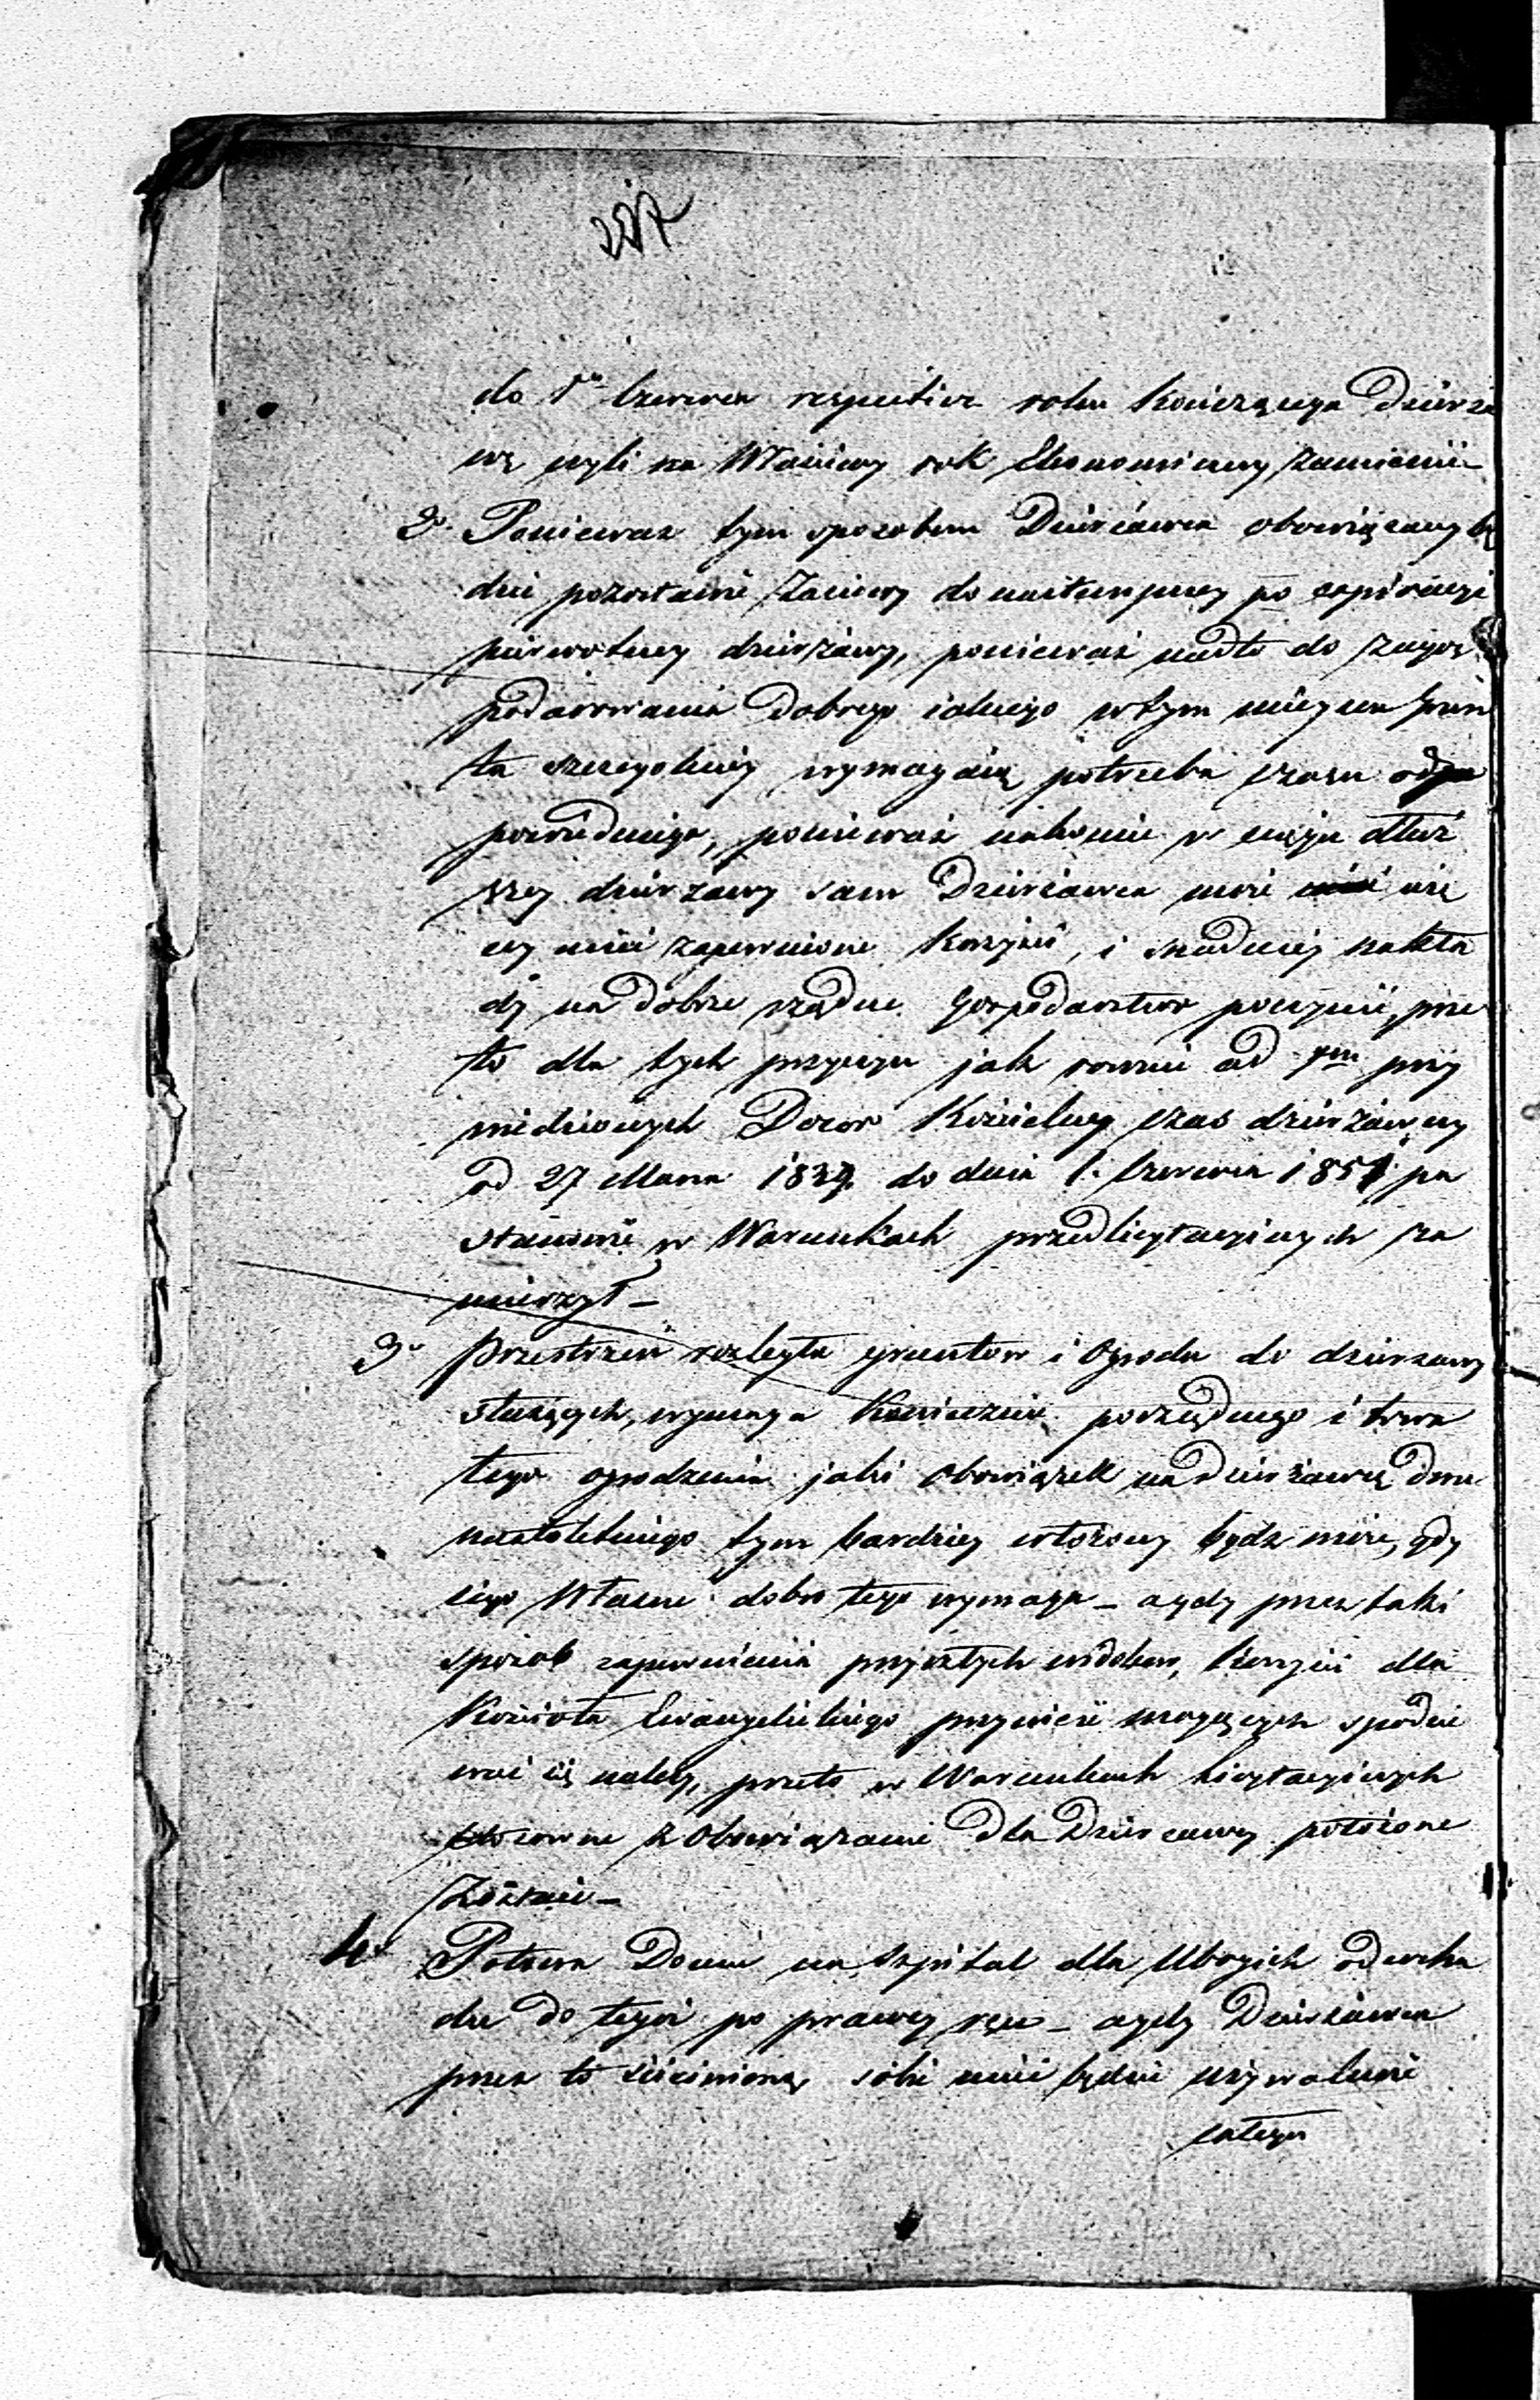 227
do 1o Czerwca respective roku kończącego Dzierża
wę czyli na Właściwy rok Ekonomiczny zamienić
2o Ponieważ tym sposobem Dzierżawca obowiązany bę
dzie pozostawić Zasiewy do następney po expiracyi
pierwotney dzierżawy, ponieważ nadto do zagos
podarowania dobrego i w tym
ta szczegolniey wymagaią potrzeba czasu od
powiedniego, ponieważ nakoniec w ciągu dłuż
szey dzierżawy sam Dzierżawca może
mieć zapewnione korzyści, i nakła
dy na dobrze rządne Gospodarstwo poczynić, prze
to dla tych przyczyn jak rownie ad 1um przy
wiedzionych Dozor Kościelny czas dzierżawny
od 27 Marca 1839 do dnia 1. Czerwca 1851 po
stanowić w Warunkach przedlicytacyinych za
mierzył –
3o Przestrzeń rozległa gruntow i Ogrodu do dzierżawy
służących, wymaga koniecznie porządnego i trwa
łego ogrodzenia jaki obowiązek na Dzierżawcę dwu
nastoletniego tym bardziey włożony będz może, gdy
iego Własne dobro tego wymaga – a gdy przez taki
sposob zapewnienia przyszłych korzyści dla
Kościoła Ewangelickiego przynieść mogących spodzie
wać się należy, przeto w Warunkach licytacyinych
stosowne zobowiązanie dla Dzierżawcy położone
Zostanie –
4o Połowa Domu na szpital dla Ubogich od wcho
du do tegoż po prawey ręce – a gdy Dzierżawca
przez to ścieśnioną sobie mieć będzie używalność
całego